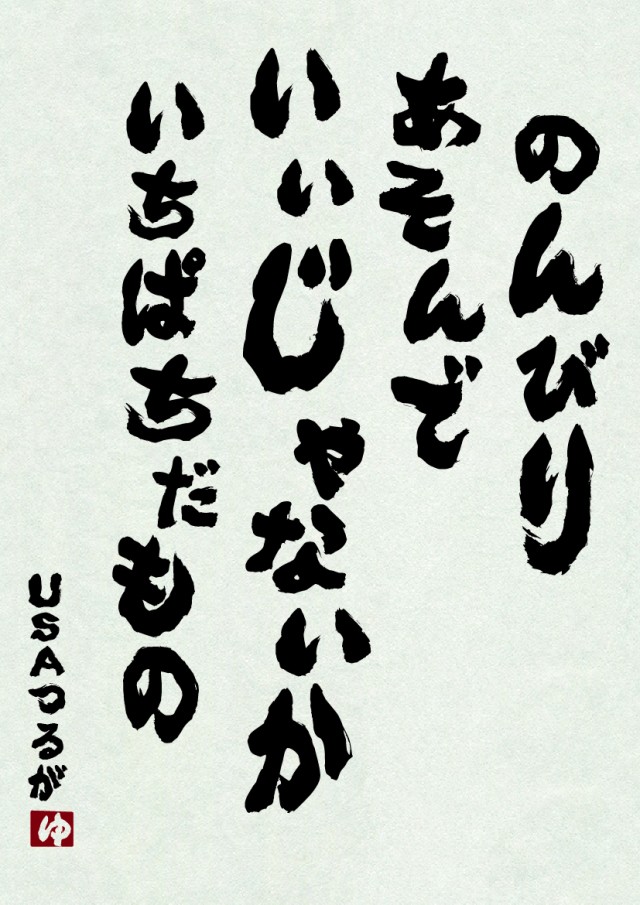 のんびり
あそんで
いいじゃないか
いちぱちだもの
USAつるが
ゆ